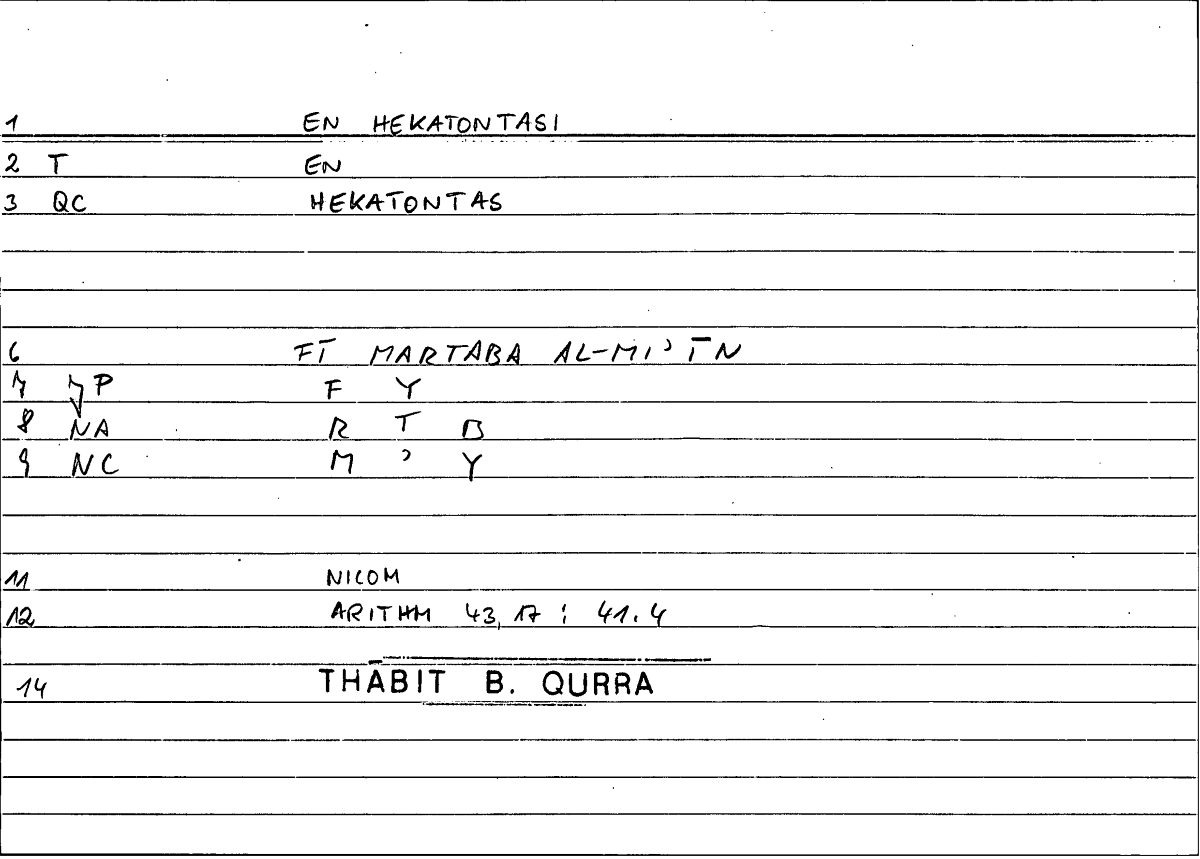 1 EN HEKATONTASI
2 T EN
3 QC HEKATONTAS
6 FĪ MARTABA AL-MI'ĪN
7 P F Y
8 NA R T B
9 NC M ' Y
11 NICOM
12 ARITHM 43,17 ; 41.4
14 THĀBIT B. QURRA